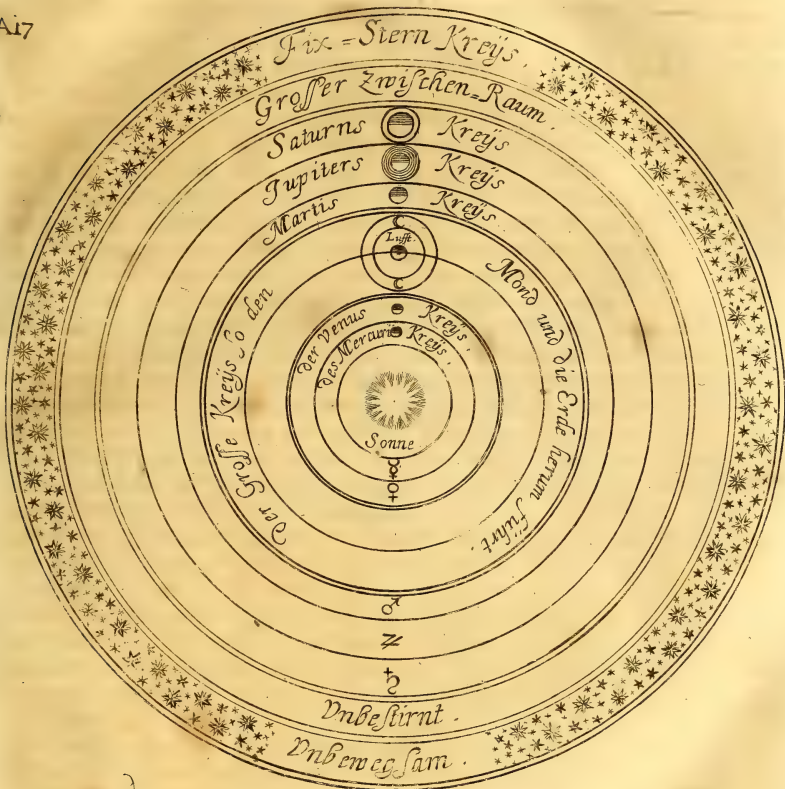 A17
Fix=Stern Kreÿs.
Groſſer Zwiſchen=Raum.
Saturns Kreÿs
Jupiters Kreÿs
Martis Kreÿs
Lufft.
Der Groſſe Kreÿs ſo den Mond und die Erde herum führt.
der Venus Kreÿs.
des Mercurii Kreÿs.
Sonne
☿
♀
♂
♃
♄
Vnbeſtirnt.
Vnbewegſam.